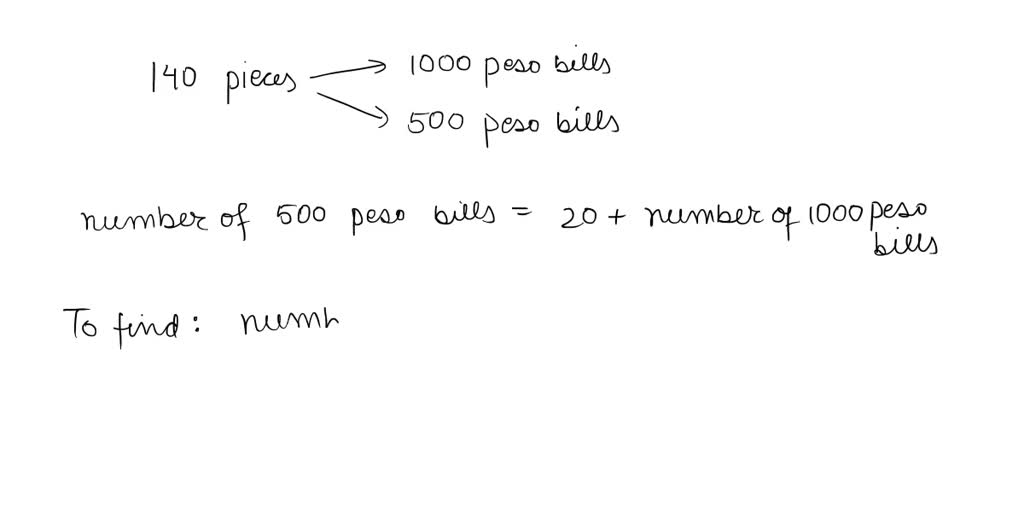 140 pieces → 1000 peso bills
→ 500 peso bills
number of 500 peso bills = 20 + number of 1000 peso
bills
To find: numb